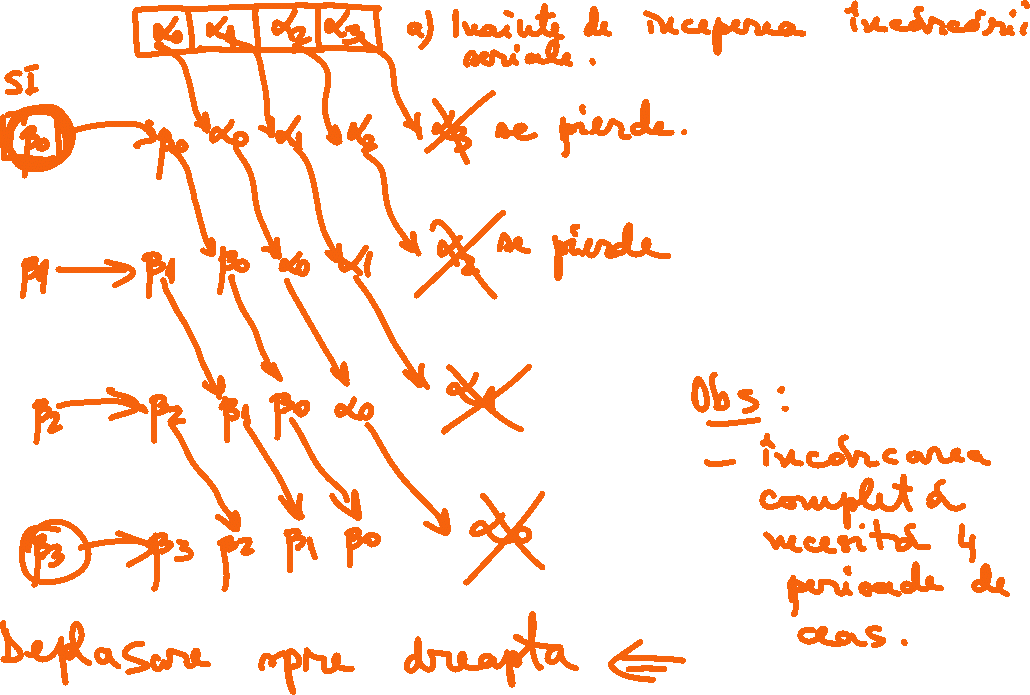 α0 α1 α2 α3 a) Inainte de inceperea încărcării
seriale.
SI
β0 β0 α0 α1 α2 α3 se pierde.
β1 β1 β0 α0 α1 α2 se pierde
β2 β2 β1 β0 α0 α1
Obs :
– încărcarea
completă
necesită 4
perioade de
ceas.
β3 β3 β2 β1 β0 α0
Deplasare spre dreapta